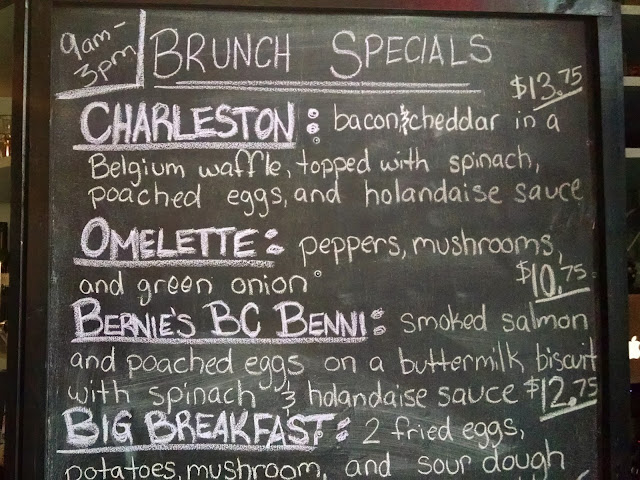 9am-
3pm
BRUNCH SPECIALS
$13.75
CHARLESTON: bacon & cheddar in a
Belgium waffle, topped with spinach,
poached eggs, and holandaise sauce
OMELETTE: peppers, mushrooms,
and green onion. $10.75
BERNIE'S BC BENNI: smoked salmon
and poached eggs on a buttermilk biscuit
with spinach & holandaise sauce $12.75
BIG BREAKFAST: 2 fried eggs,
potatoes, mushroom, and sour dough